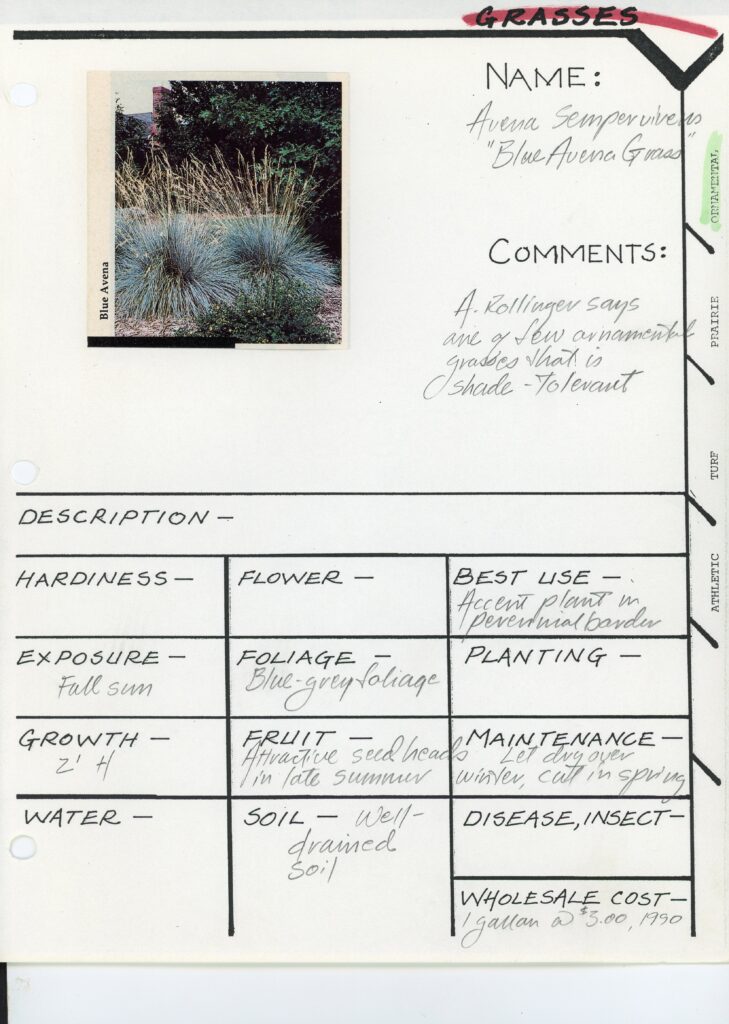 GRASSES
NAME:
Avena Sempervirens
"Blue Avena Grass"
Blue Avena
COMMENTS:
A. Rollinger says
one of few ornamental
grasses that is
shade-tolerant
ORNAMENTAL
PRAIRIE
TURF
ATHLETIC
DESCRIPTION –
HARDINESS –
FLOWER –
BEST USE –
Accent plant in
perennial border
EXPOSURE –
Full sun
FOLIAGE –
Blue-grey foliage
PLANTING –
GROWTH –
2' H
FRUIT –
Attractive seed heads
in late summer
MAINTENANCE –
Let dry over
winter, cut in spring
WATER –
SOIL – Well-
drained
soil
DISEASE, INSECT–
WHOLESALE COST–
1 gallon @ $3.00, 1990